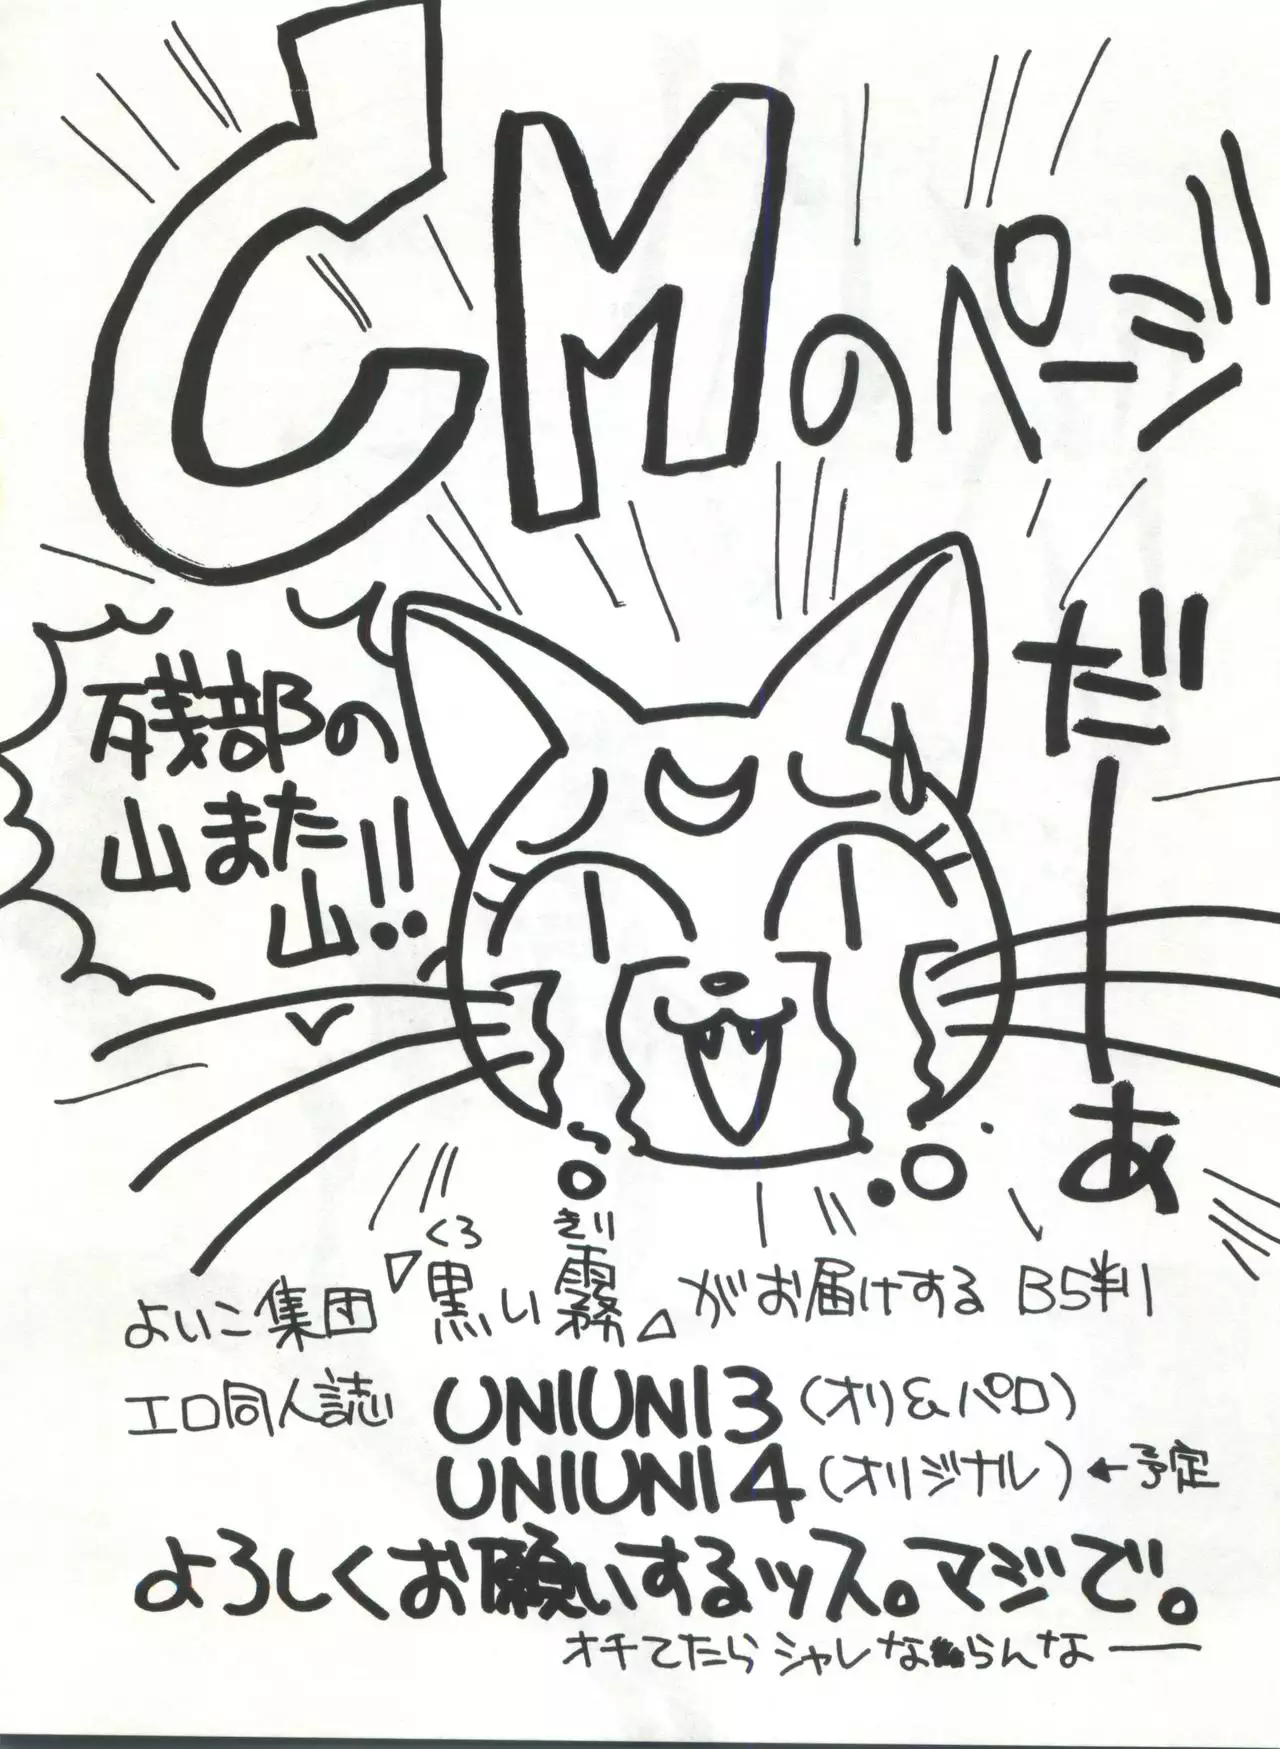 CMのページ
だーあ
残部の
山また
山!!
よいこ集団『黒い霧』がお届けする B5判
くろ
きり
エロ同人誌 UNIUNI3 (オリ&パロ)
UNIUNI4 (オリジナル) ←予定
よろしくお願いするッス。マジで。
オチてたらシャレならんなー